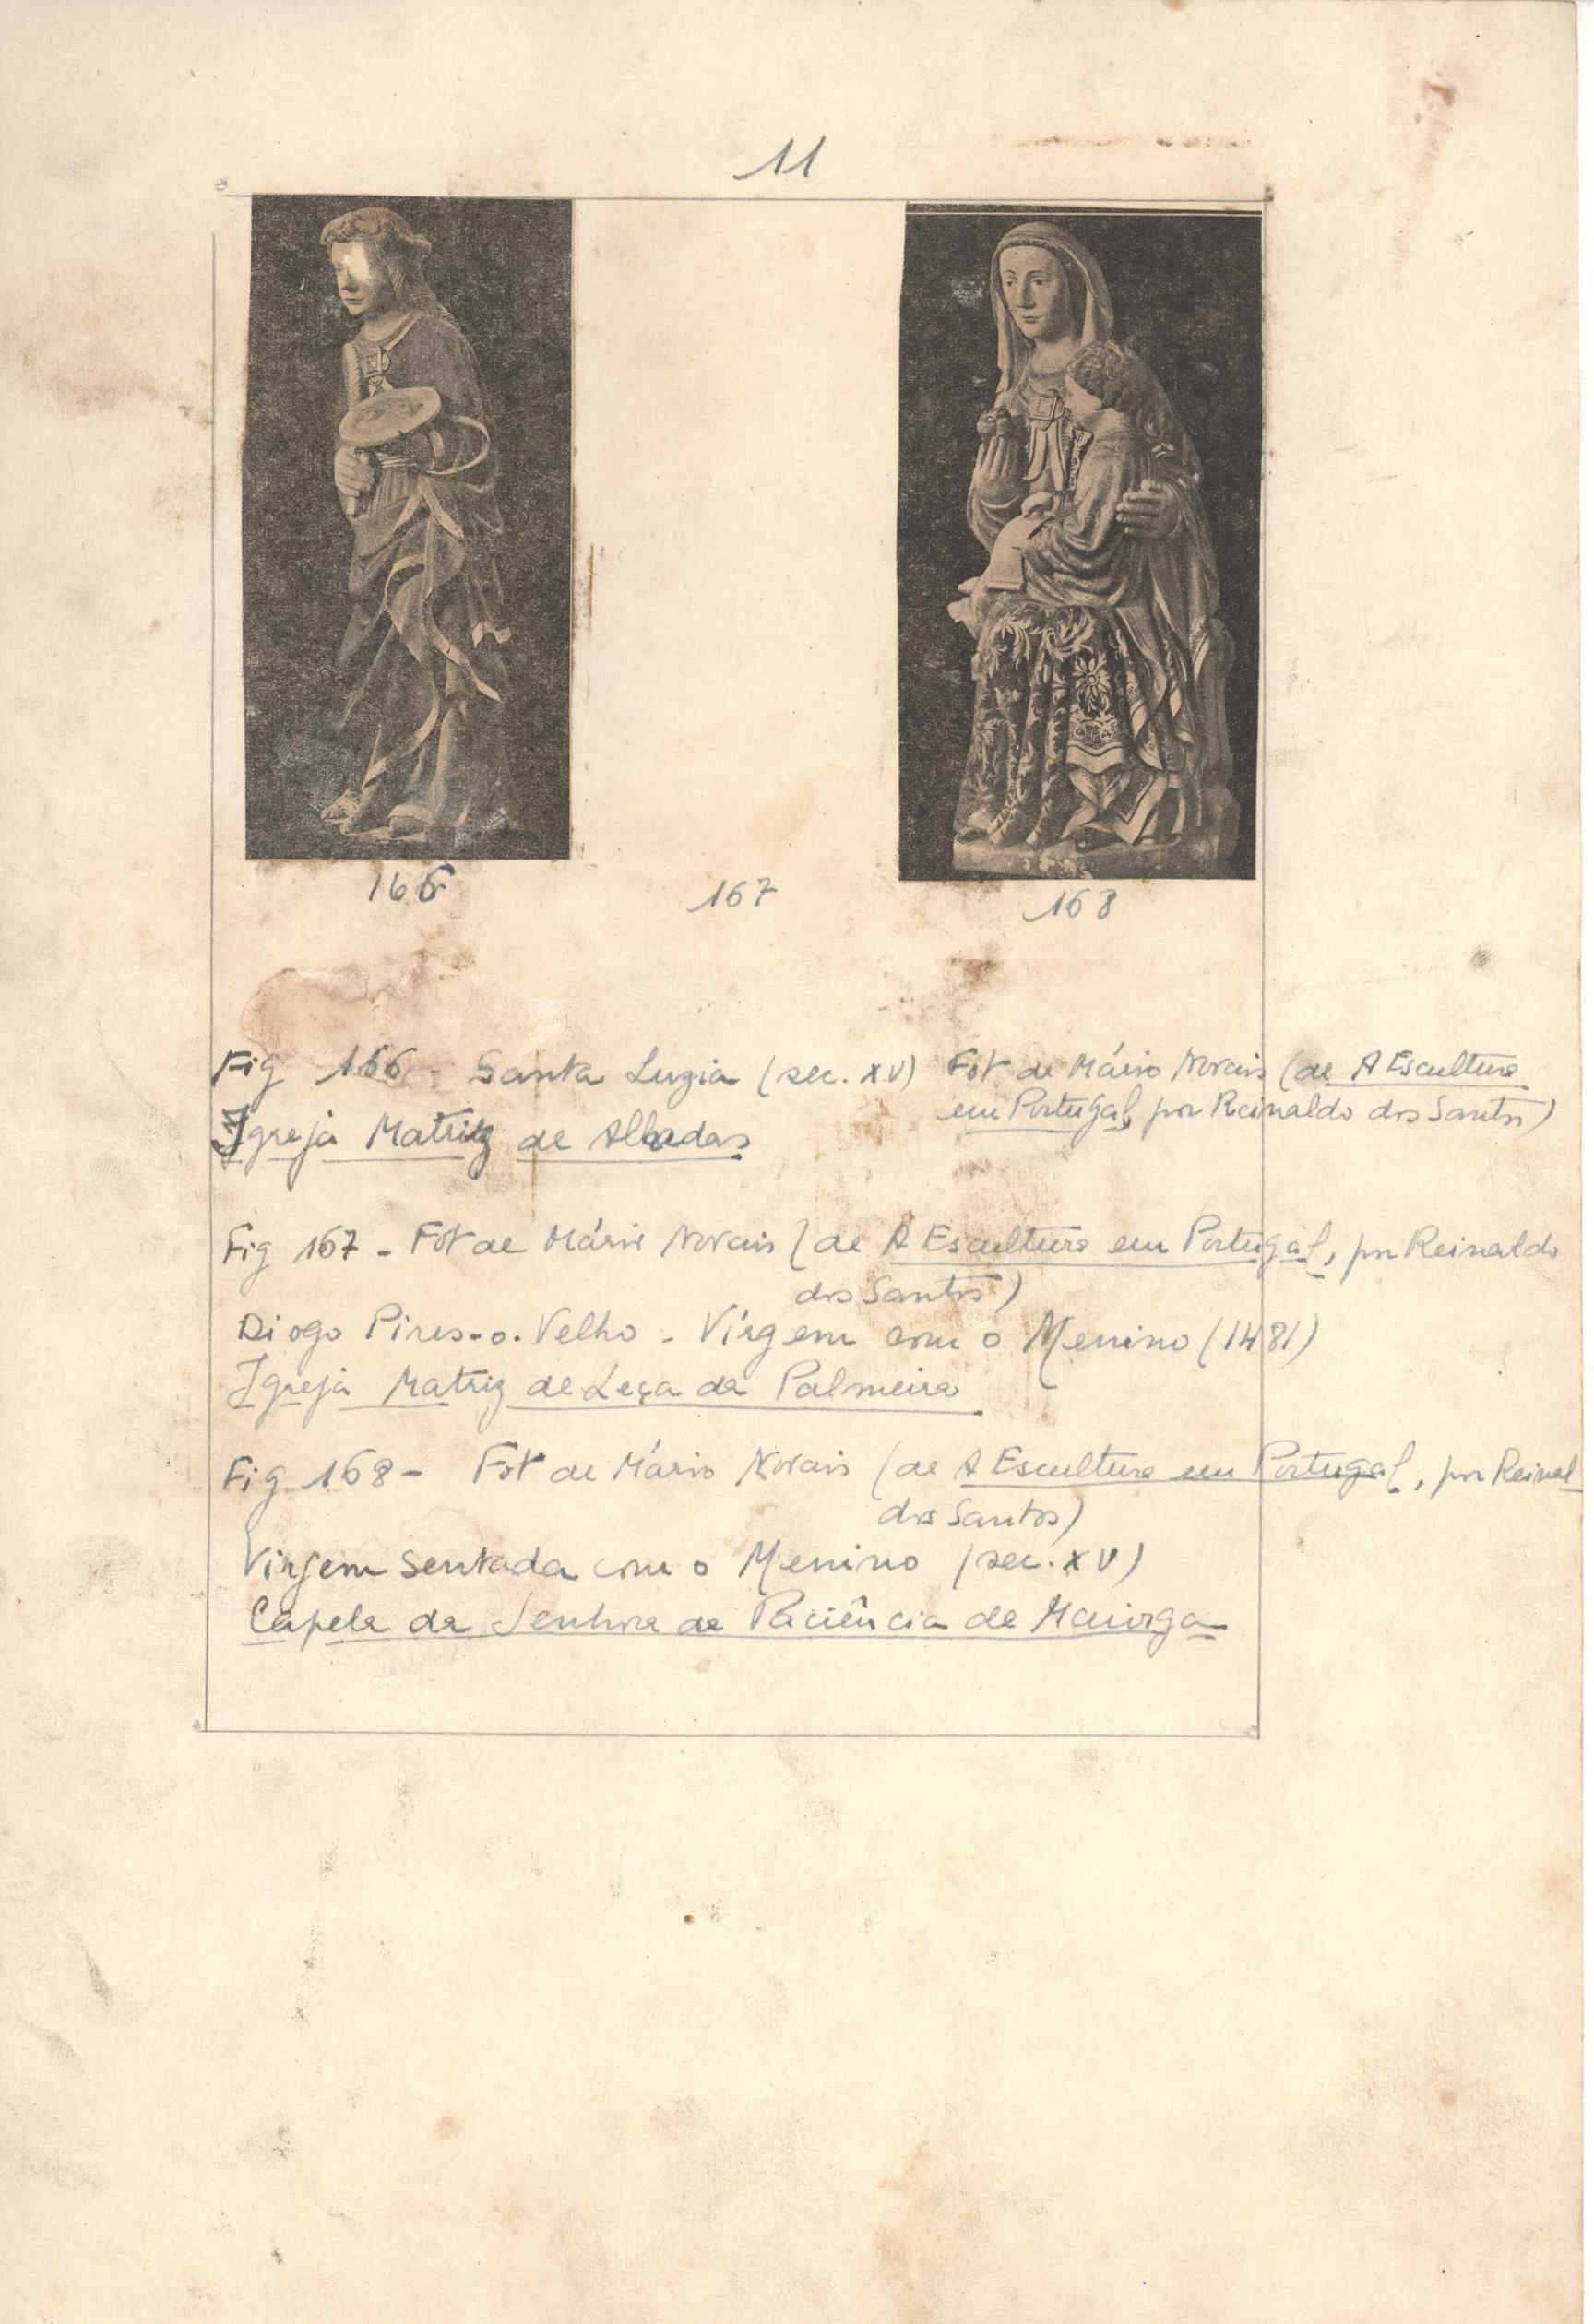 11
166
167
168
Fig 166 - Santa Luzia (sec. XV) Fot de Mário Novais (de A Escultura
em Portugal, por Reinaldo dos Santos)
Igreja Matriz de Alhadas
Fig 167 - Fot de Mário Novais (de A Escultura em Portugal, por Reinaldo
dos Santos)
Diogo Pires-o-Velho - Virgem com o Menino (1481)
Igreja Matriz de Leça da Palmeira
Fig 168 - Fot de Mário Novais (de A Escultura em Portugal, por Reinal
dos Santos)
Virgem Sentada com o Menino (sec. XV)
Capela da Senhora da Paciência de Maiorga